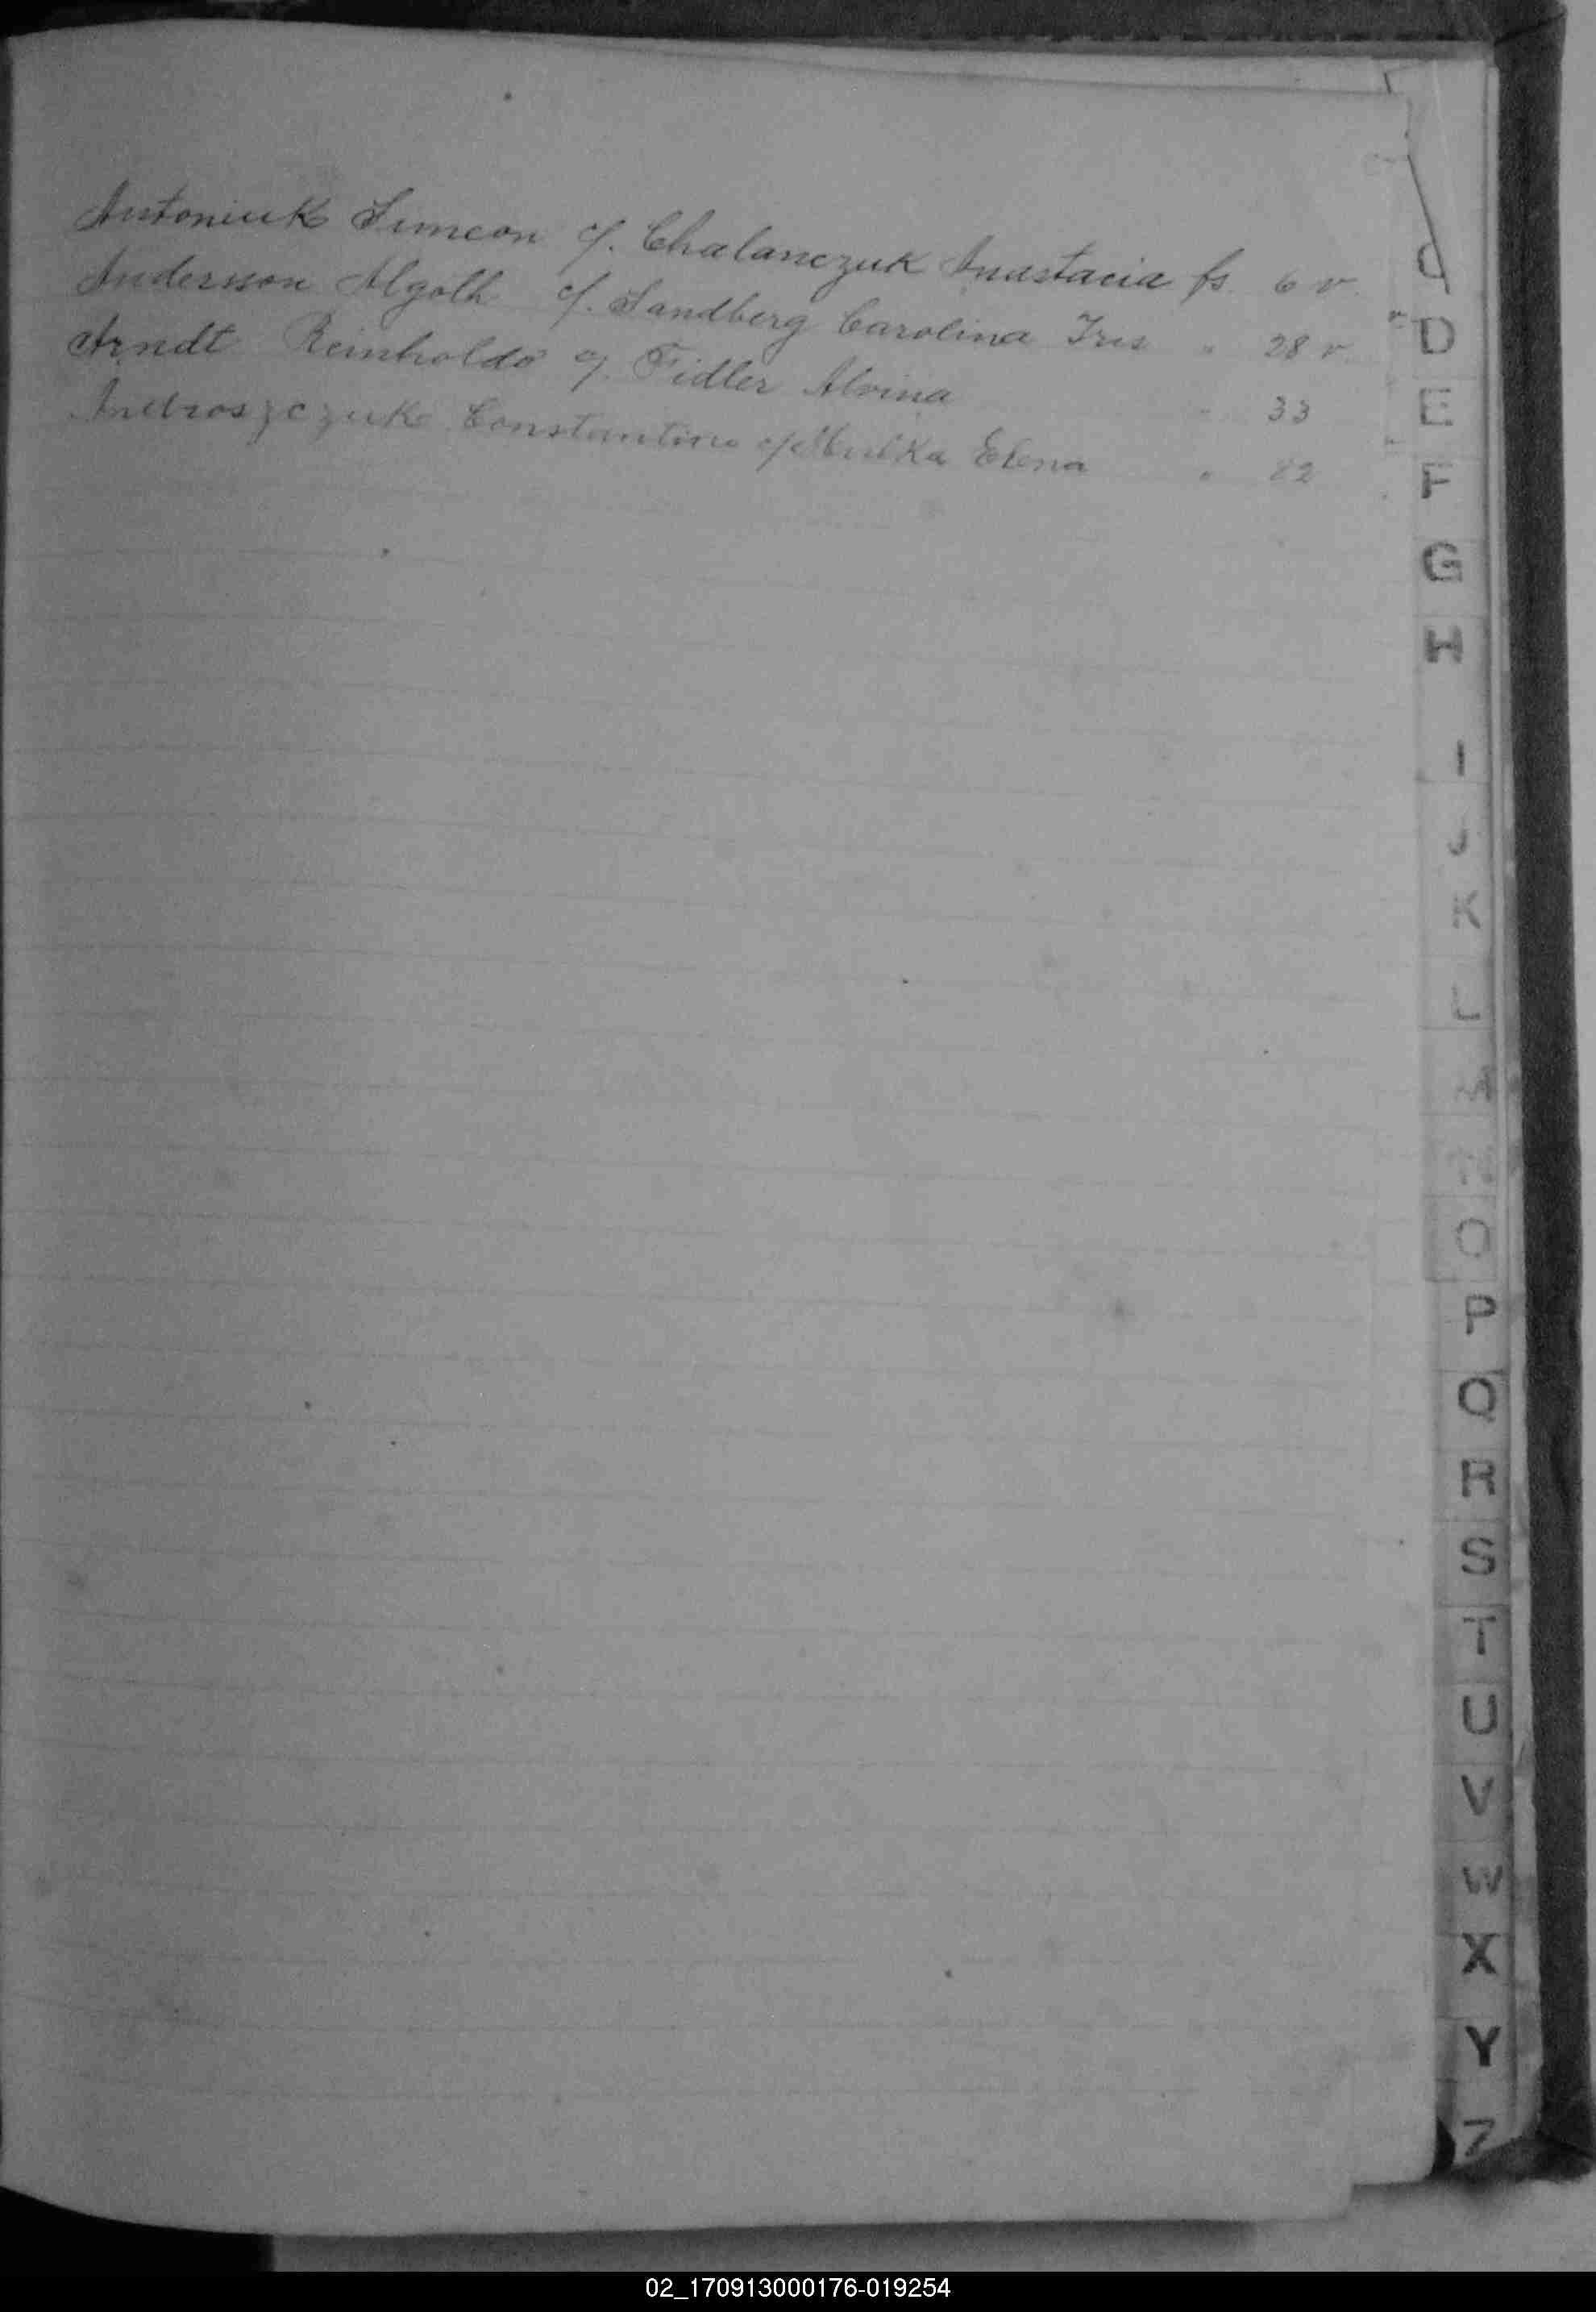 Antoniuk Simeon c/. Chalanczuk Anastacia fs. 6 v.
Andersson Algoth c/. Sandberg Carolina Iris " 28 v.
Arndt Reinholdo c/. Fidler Alvina " 33
Androszczuk Constantino c/ Elena " 82
C
D
E
F
G
H
I
J
K
L
O
P
Q
R
S
T
U
V
W
X
Y
Z
02_170913000176-019254